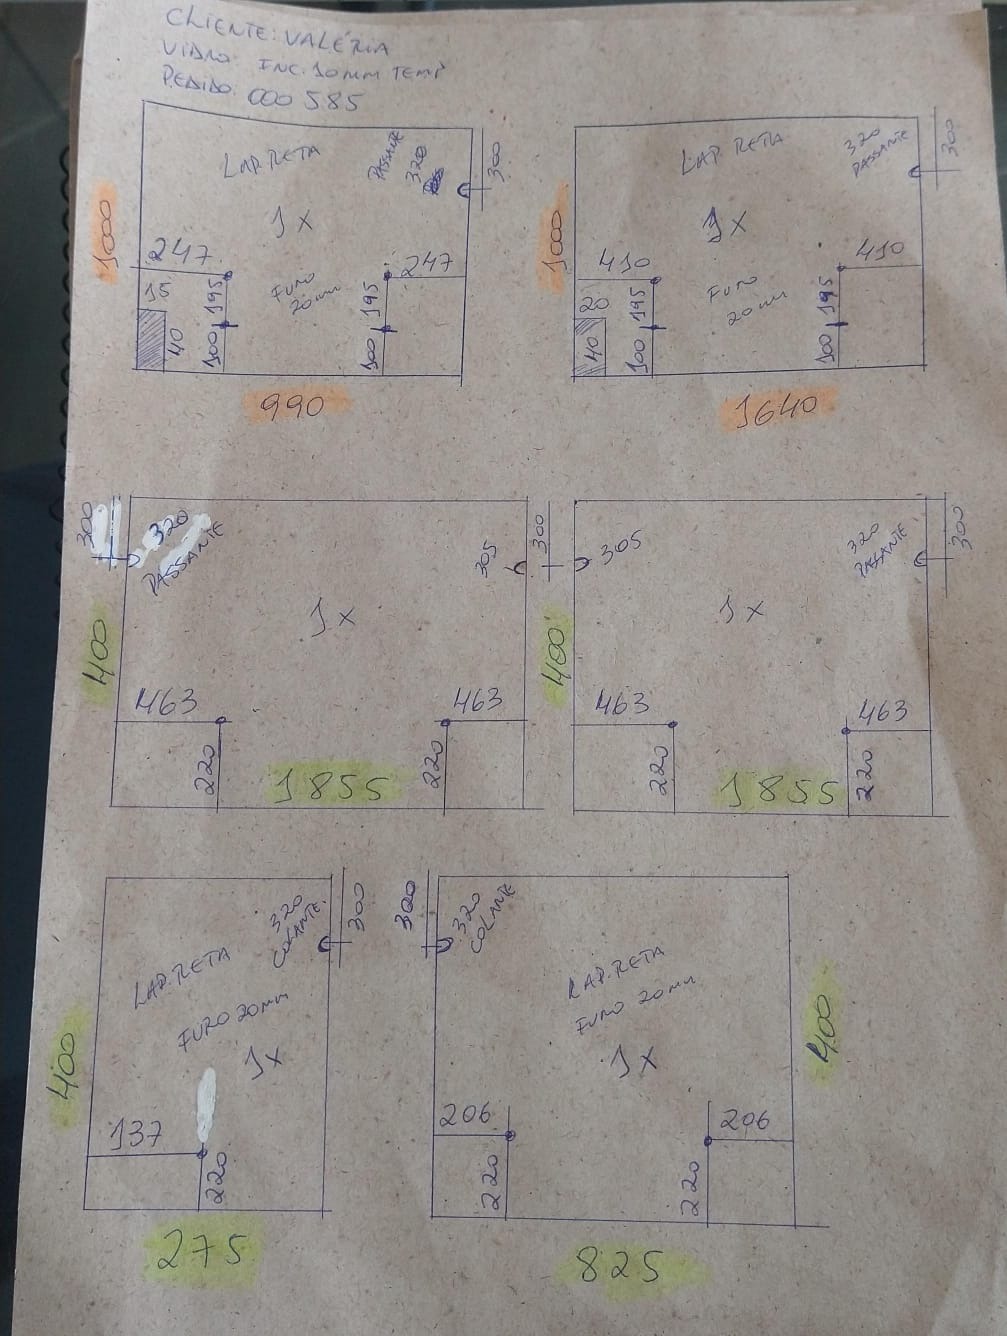 CLIENTE: VALÉRIA
VIDRO: INC. 10MM TEMP
PEDIDO: 000 585
LAP. RETA
PASSANTE
320
300
1000
1 X
247
247
15
195
FURO
20mm
195
40
100
100
990
LAP. RETA
320
PASSANTE
300
1000
1 X
410
410
20
195
FURO
20mm
195
40
100
100
1640
300
320
PASSANTE
305
300
400
1 X
463
463
220
220
1855
305
320
PASSANTE
300
400
1 X
463
463
220
220
1855
320
COLANTE
300
LAP. RETA
FURO 20mm
400
1 X
137
220
275
300
320
COLANTE
LAP. RETA
FURO 20mm
400
1 X
206
206
220
220
825